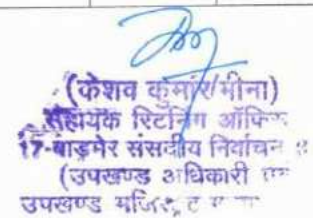 (केशव कुमार मीना)
सहायक रिटर्निंग ऑफि
17-बाड़मेर संसदीय निर्वाचन
(उपखण्ड अधिकारी एवं
उपखण्ड मजिस्ट्रेट